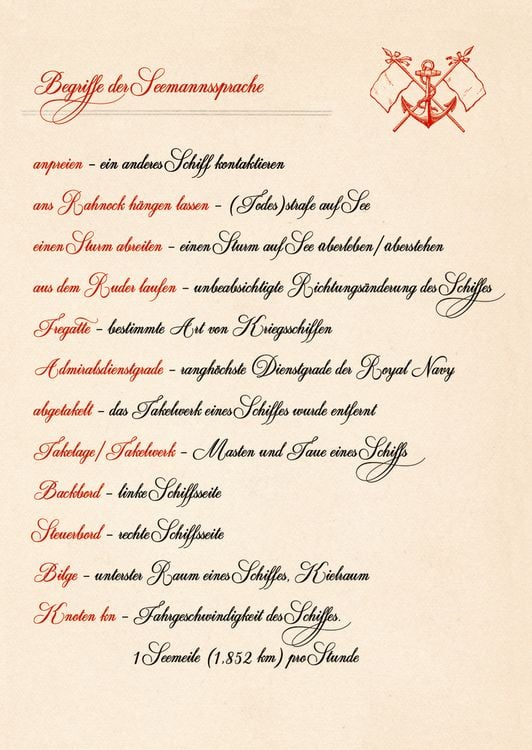 Begriffe der Seemannssprache
anpreien - ein anderes Schiff kontaktieren
ans Rahnock hängen lassen - (Todes)strafe auf See
einen Sturm abreiten - einen Sturm auf See überleben/überstehen
aus dem Ruder laufen - unbeabsichtigte Richtungsänderung des Schiffes
Fregatte - bestimmte Art von Kriegsschiffen
Admiralsdienstgrade - ranghöchste Dienstgrade der Royal Navy
abgetakelt - das Takelwerk eines Schiffes wurde entfernt
Takelage/Takelwerk - Masten und Taue eines Schiffs
Backbord - linke Schiffsseite
Steuerbord - rechte Schiffsseite
Bilge - unterster Raum eines Schiffes, Kielraum
Knoten kn - Fahrgeschwindigkeit des Schiffes.
1 Seemeile (1,852 km) pro Stunde